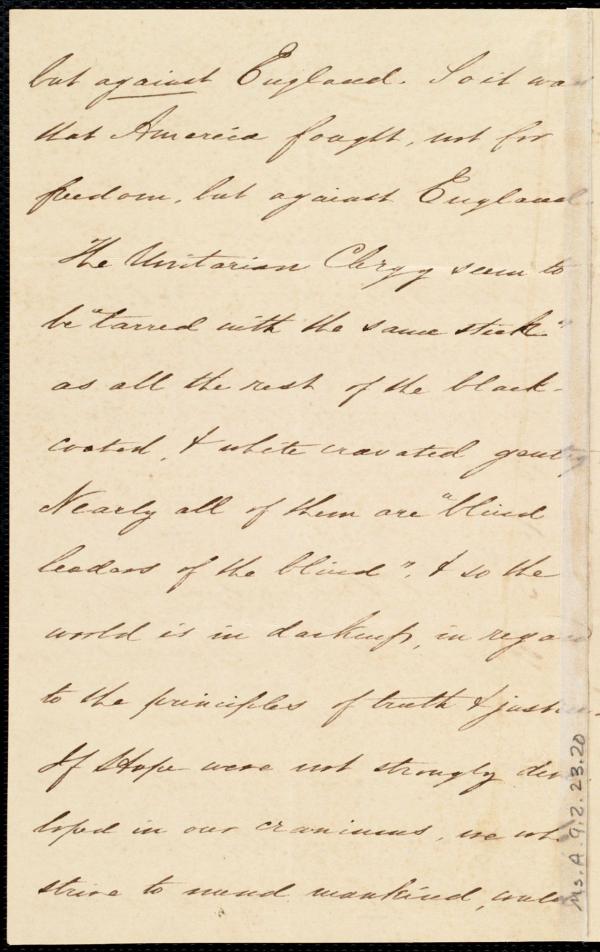 but against England. So it was
that America fought, not for
freedom, but against England.
The Unitarian Clergy seem to
be "tarred with the same stick"
as all the rest of the black-
coated, & white cravated gentry
Nearly all of them are "blind
leaders of the blind", & so the
world is in darkness, in regard
to the principles of truth & justice.
If Hope were not strongly deve
loped in our craniums, we who
strive to mend mankind, would
Ms. A. 9. 2. 23. 20